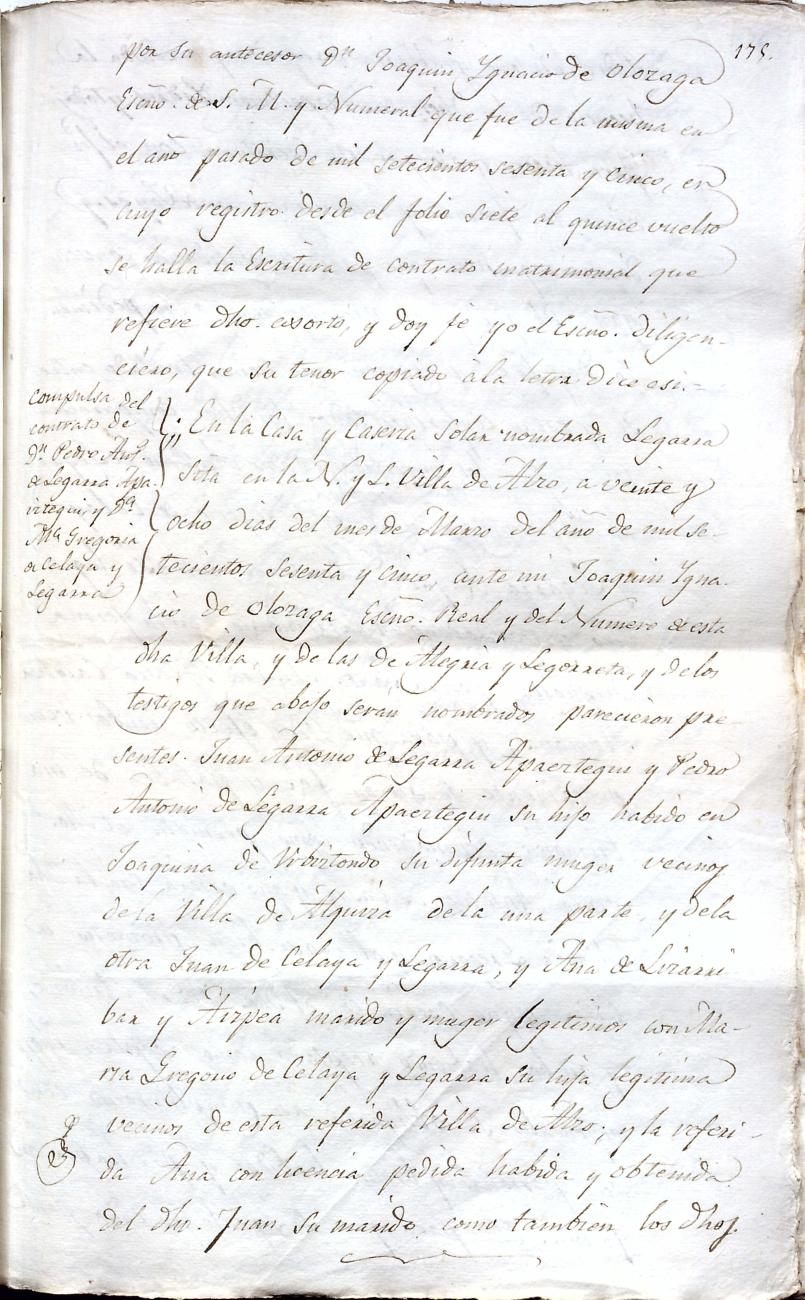 175.
por su antecesor Dn Joaquin Ygnacio de Olozaga
Esño. de S. M. y Numeral que fue de la misma en
el año pasado de mil setecientos sesenta y cinco, en
cuyo registro desde el folio siete al quince vuelto
se halla la Escritura de contrato matrimonial que
refiere dho. exsorto, y doy fe yo el Esño. diligen-
ciero, que su tenor copiado á la letra dice asi.=
compulsa del
contrato de
Dn. Pedro Anto.
de Legarra Apa-
irtegui, y Da.
Ma. Gregoria
de Celaya y
Legarra
En la Casa y Caseria Solar nombrada Legarra
sita en la N. y L. Villa de Alzo, a veinte y
ocho dias del mes de Marzo del año de mil se-
tecientos sesenta y cinco, ante mi Joaquin Ygna-
cio de Olozaga Esño. Real y del Numero de esta
dha Villa, y de las de Alegria y Legorreta, y de los
testigos que abajo serán nombrados parecieron pre-
sentes. Juan Antonio de Legarra Apaertegui y Pedro
Antonio de Legarra Apaertegui su hijo habido en
Joaquina de Urbiztondo su difunta muger vecinos
de la Villa de Alquiza de la una parte, y de la
otra Juan de Celaya y Legarra, y Ana de Lizarri-
bar y Aizpea marido y muger legitimos con Ma-
ria Gregorio de Celaya y Legarra su hija legitima
vecinos de esta referida Villa de Alzo; y la referi-
da Ana con licencia pedida habida y obtenida
del dho. Juan su marido, como tambien los dhos.